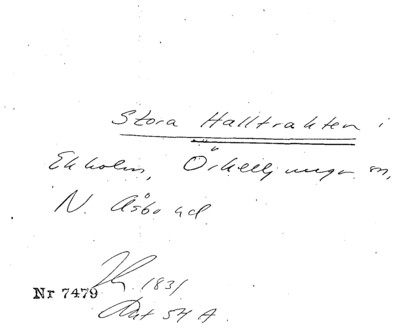 Stora Halltrakten i
Ekholm, Örkelljunga sn,
N. Åsbo hd.
1831
Nr 7479
Akt 54 A.